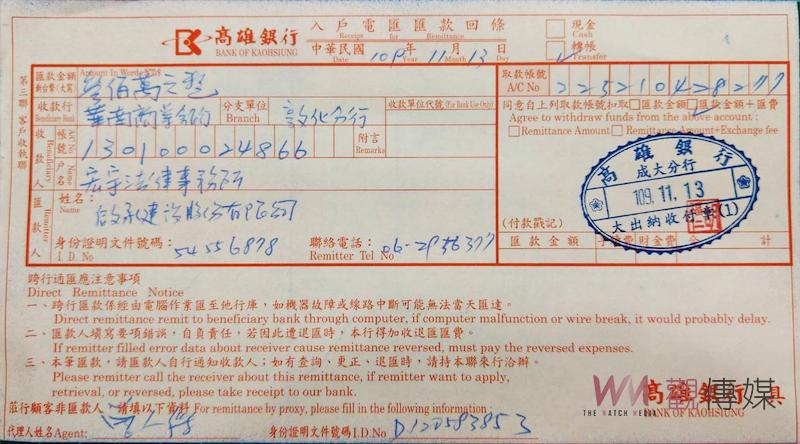 高雄銀行
BANK OF KAOHSIUNG
入戶電匯匯款回條
Receipt for Remittance
中華民國 109 年 11 月 13 日
Date Year Month Day
現金
Cash
轉帳
Transfer
第三聯 客戶收執聯
匯款金額
新台幣(大寫)
Amount In Words NT$
叁佰萬元整
取款帳號
A/C No 225210428277
收款行
Beneficiary Bank
華南商業銀行
分支單位
Branch
敦化分行
收款單位代號 (For Bank Use Only)
同意自上列取款帳號扣取 匯款金額 匯款金額+匯費
Agree to withdraw funds from the above account:
Remittance Amount Remittance Amount+Exchange fee
收款人
Beneficiary
帳號
A/C No
130100024866
附言
Remarks
戶名
Name
宏宇法律事務所
匯款人
Remitter
姓名:
Name
啟承建設股份有限公司
身份證明文件號碼:
I.D.No
54556878
聯絡電話:
Remitter Tel No
06-2956377
高雄銀行
成大分行
109.11.13
大出納收付章(1)
(付款戳記)
匯款金額 手續費 郵金費 合計
跨行通匯應注意事項
Direct Remittance Notice
一、跨行匯款係經由電腦作業匯至他行庫,如機器故障或線路中斷可能無法當天匯達。
Direct remittance remit to beneficiary bank through computer, if computer malfunction or wire break, it would probably delay.
二、匯款人填寫要項錯誤,自負責任,若因此遭退匯時,本行得加收退匯匯費。
If remitter filled error data about receiver cause remittance reversed, must pay the reversed expenses.
三、本筆匯款,請匯款人自行通知收款人;如有查詢、更正、退匯時,請持本聯來行洽辦。
Please remitter call the receiver about this remittance, if remitter want to apply,
retrieval, or reversed, please take receipt to our bank.
高雄銀行 具
BANK OF KAOHSIUNG
觀傳媒
THE WATCH MEDIA
蒞行顧客非匯款人,請填以下資料 For remittance by proxy, please fill in the following information:
代理人姓名Agent:
身份證明文件號碼I.D.No D120583853